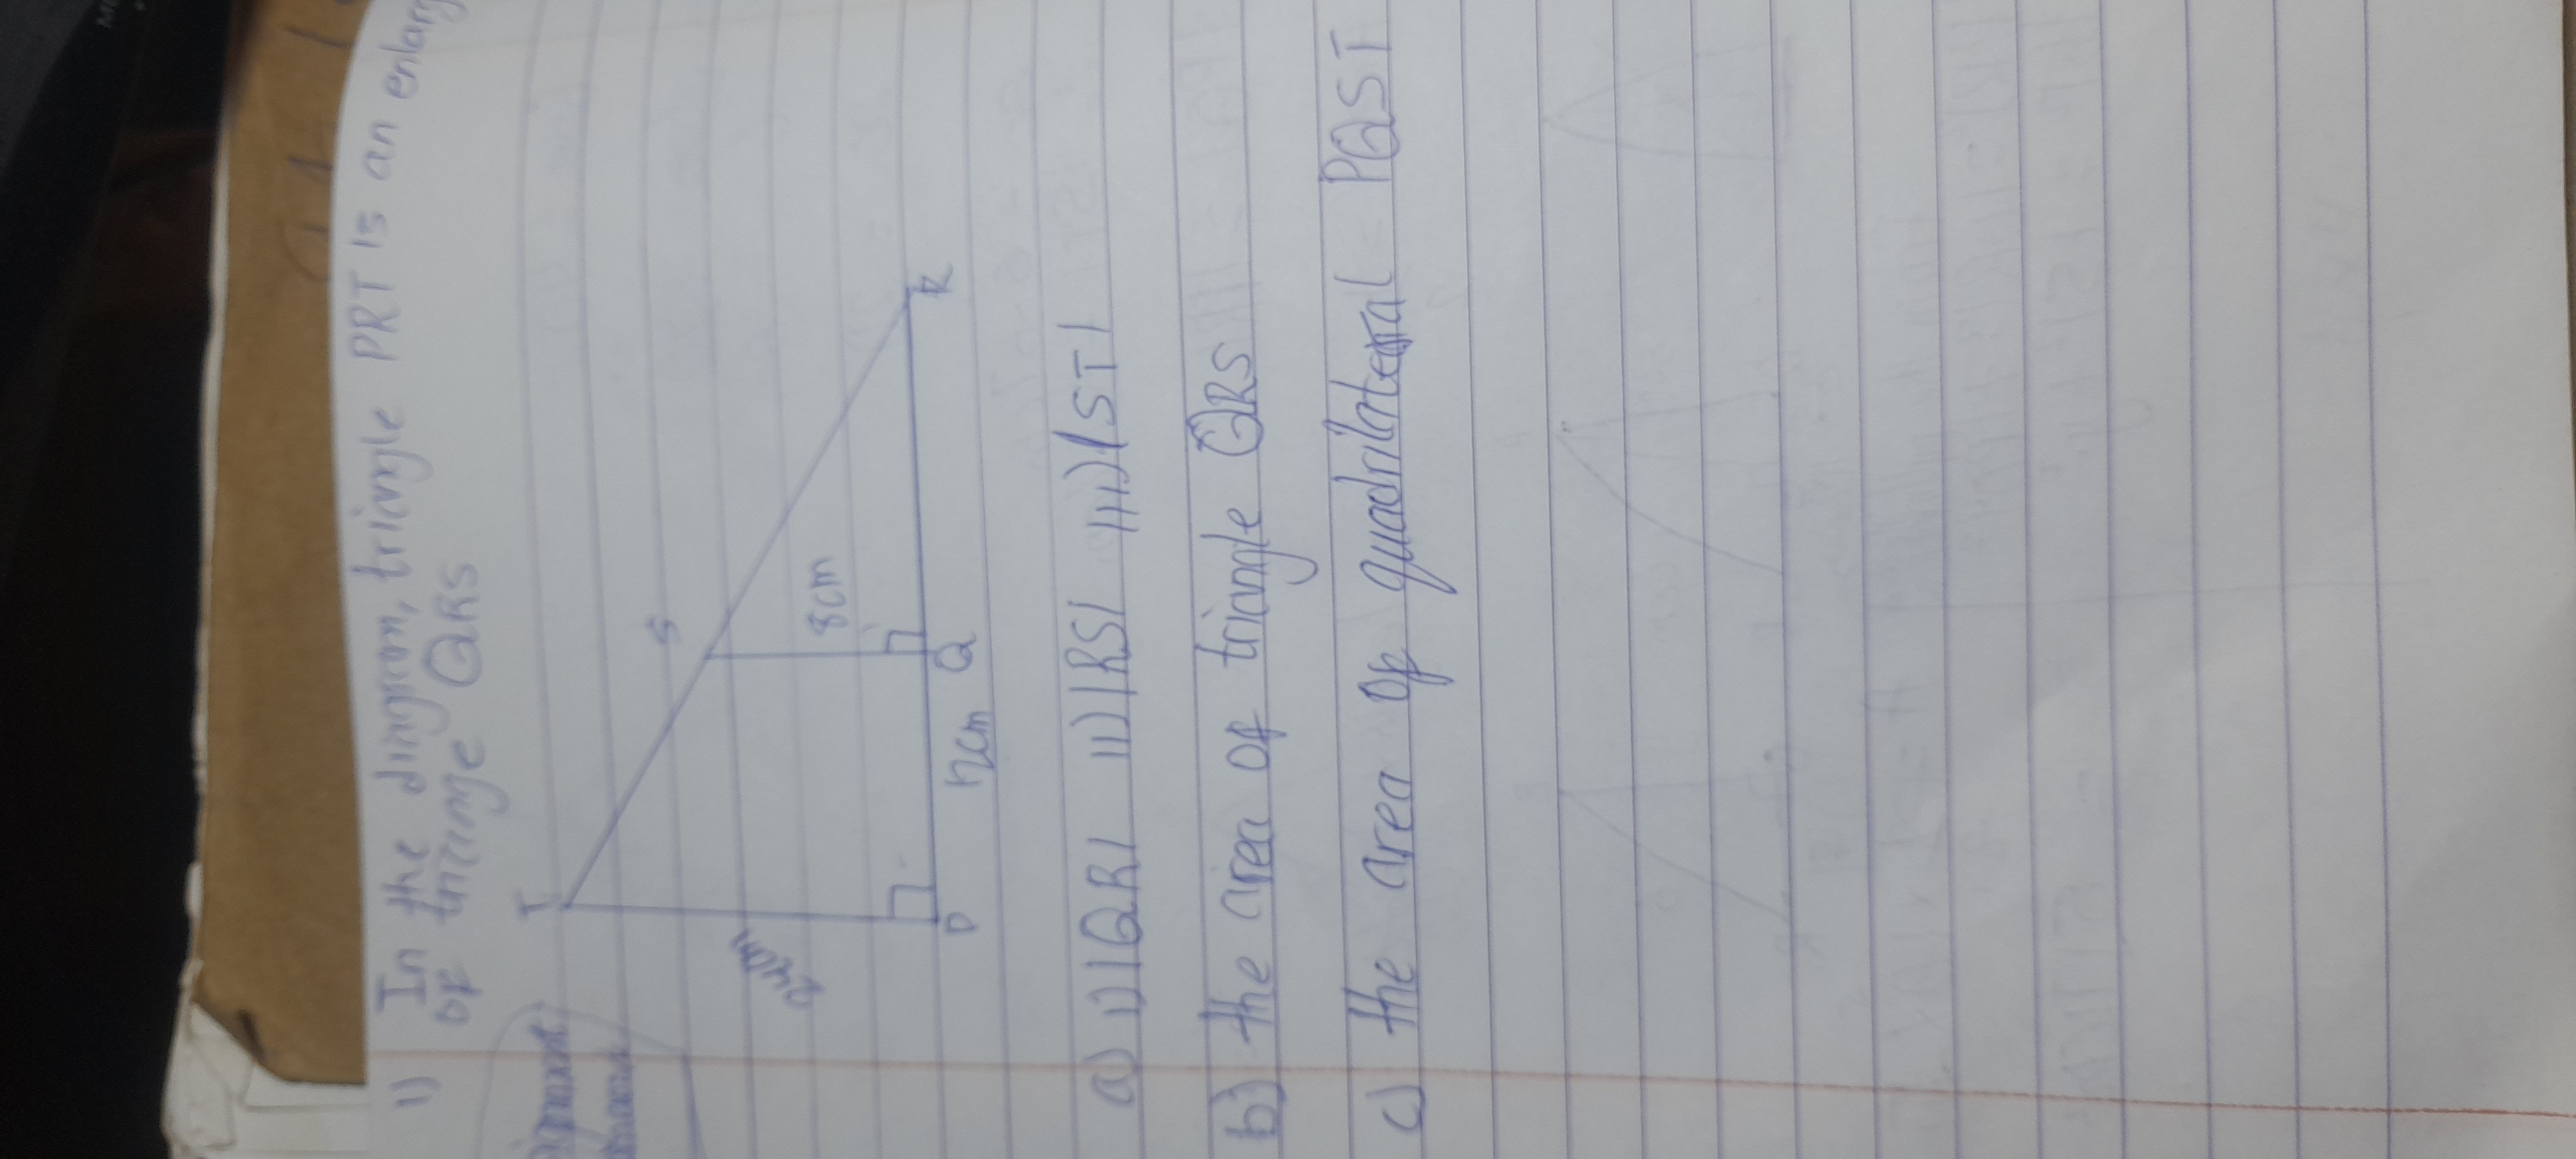 1) In the diagram, triangle PRT is an enlarg
of triange QRS
T
S
24cm
8cm
P
12cm
Q
R
a) i) |QR| ii) |RS| iii) |ST|
b) the area of triangle QRS
c) the area of quadrilateral PQST